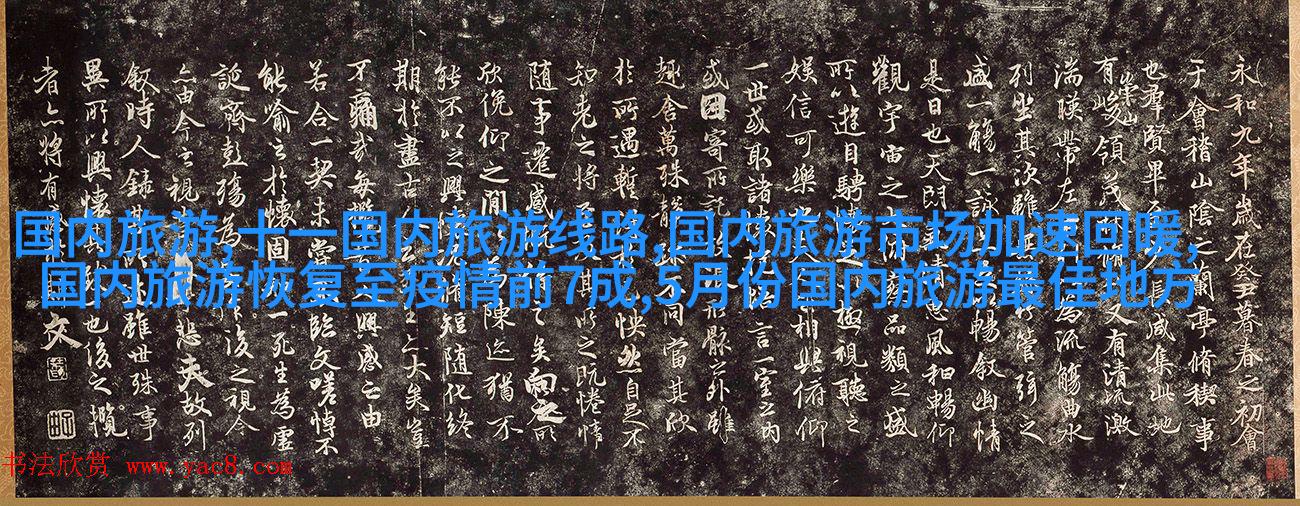 国内旅游,十一国内旅游线路,国内旅游市场加速回暖,
国内旅游恢复至疫情前7成,5月份国内旅游最佳地方
永和九年歲在癸丑暮春之初會
于會稽山陰之蘭亭脩稧事
也羣賢畢至長咸集此地
有崇山峻領茂林脩又有清流激
湍暎帶左為流觴曲水
列坐其次雖無管弦之
盛一觴一詠暢敘幽情
是日也天朗清惠風和暢仰
觀宇宙之俯察品類之盛
所以遊目騁極視聽之
娛信可樂也人相與俯仰
一世或取諸抱悟言一室之內
或因寄所託形骸之外雖
趣舍萬殊靜躁不同當其欣
於所遇暫怏然自足不
知老之將其所之既惓情
隨事遷感之矣向之所
欣俛仰之間陳迹猶不
能不以之興懷脩短隨化終
期於盡古大矣豈
不痛哉每攬興感之由
若合一契未嘗臨文嗟悼不
能喻之於懷固一死生為虛
誕齊彭殤為後之視今
亦由今之視悲夫故列
敘時人錄雖世殊事
異所以興懷也後之攬
者亦將有文
书法欣赏 www.yac8.com